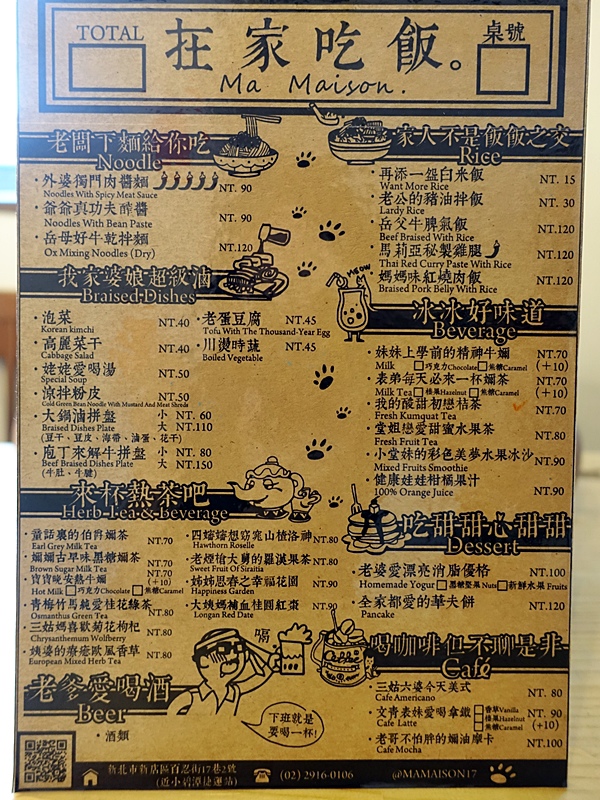 TOTAL
在家吃飯。
桌號
Ma Maison.
老闆下麵給你吃
Noodle
外婆獨門肉醬麵
NT. 90
Noodles With Spicy Meat Sauce
爺爺真功夫醡醬
NT. 90
Noodles With Bean Paste
岳母好牛乾拌麵
NT.120
Ox Mixing Noodles (Dry)
家人不是飯飯之交
Rice
再添一盌白米飯
NT. 15
Want More Rice
老公的豬油拌飯
NT. 30
Lardy Rice
岳父牛脾氣飯
NT.120
Beef Braised With Rice
馬莉亞秘製雞腿
NT.120
Thai Red Curry Paste With Rice
媽媽味紅燒肉飯
NT.120
Braised Pork Belly With Rice
我家婆娘超級滷
Braised Dishes
泡菜 NT.40
Korean kimchi
老蛋豆腐 NT.45
Tofu With The Thousand-Year Egg
高麗菜干 NT.40
Cabbage Salad
川燙時蔬 NT.45
Boiled Vegetable
姥姥愛喝湯 NT.50
Special Soup
涼拌粉皮 NT.50
Cold Green Bean Noodle With Mustard And Meat Shreds
大鍋滷拼盤 小 NT. 60
Braised Dishes Plate 大 NT.110
(豆干、豆皮、海帶、滷蛋、花干)
庖丁來解牛拼盤 小 NT. 80
Beef Braised Dishes Plate 大 NT.150
(牛肚、牛腱)
MEOW
冰冰好味道
Beverage
妹妹上學前的精神牛嬭 NT.70
Milk 巧克力Chocolate 焦糖Caramel (+10)
表弟每天必來一杯嬭茶 NT.70
Milk Tea 榛果Hazelnut 焦糖Caramel (+10)
我的酸甜初戀桔茶 NT.70
Fresh Kumquat Tea
堂姐戀愛甜蜜水果茶 NT.80
Fresh Fruit Tea
小堂妹的彩色美夢水果冰沙 NT.90
Mixed Fruits Smoothie
健康娃娃柑橘果汁 NT.90
100% Orange Juice
來杯熱茶吧
Herb Tea & Beverage
童話裏的伯爵嬭茶 NT.70
Earl Grey Milk Tea
嬭嬭古早味黑糖嬭茶 NT.70
Brown Sugar Milk Tea
寶寶晚安熱牛嬭 NT.70
(+10)
Hot Milk 巧克力Chocolate 焦糖Caramel
青梅竹馬純愛桂花綠茶 NT.80
Osmanthus Green Tea
三姑媽喜歡菊花枸杞 NT.80
Chrysanthemum Wolfberry
姨婆的療癒歐風香草 NT.80
European Mixed Herb Tea
四嬸嬸想窈窕山楂洛神 NT.80
Hawthorn Roselle
老煙槍大舅的羅漢果茶 NT.80
Sweet Fruit Of Siraitia
姊姊思春之幸福花園 NT.90
Happiness Garden
大姨媽補血桂圓紅棗 NT.90
Longan Red Date
吃甜甜心甜甜
Dessert
老婆愛漂亮消脂優格 NT.100
Homemade Yogur 黑糖堅果 Nuts 新鮮水果 Fruits
全家都愛的華夫餅 NT.120
Pancake
喝
Coffee
喝咖啡但不聊是非
Café
三姑六婆今天美式 NT. 80
Cafe Americano
文青表妹愛喝拿鐵 香草Vanilla NT. 90
Cafe Latte 榛果Hazelnut (+10)
焦糖Caramel
老哥不怕胖的嬭油摩卡 NT.100
Cafe Mocha
老爹愛喝酒
Beer
酒類
下班就是
要喝一杯!
新北市新店區百忍街17巷2號
(近小碧潭捷運站)
(02) 2916-0106
@MAMAISON17